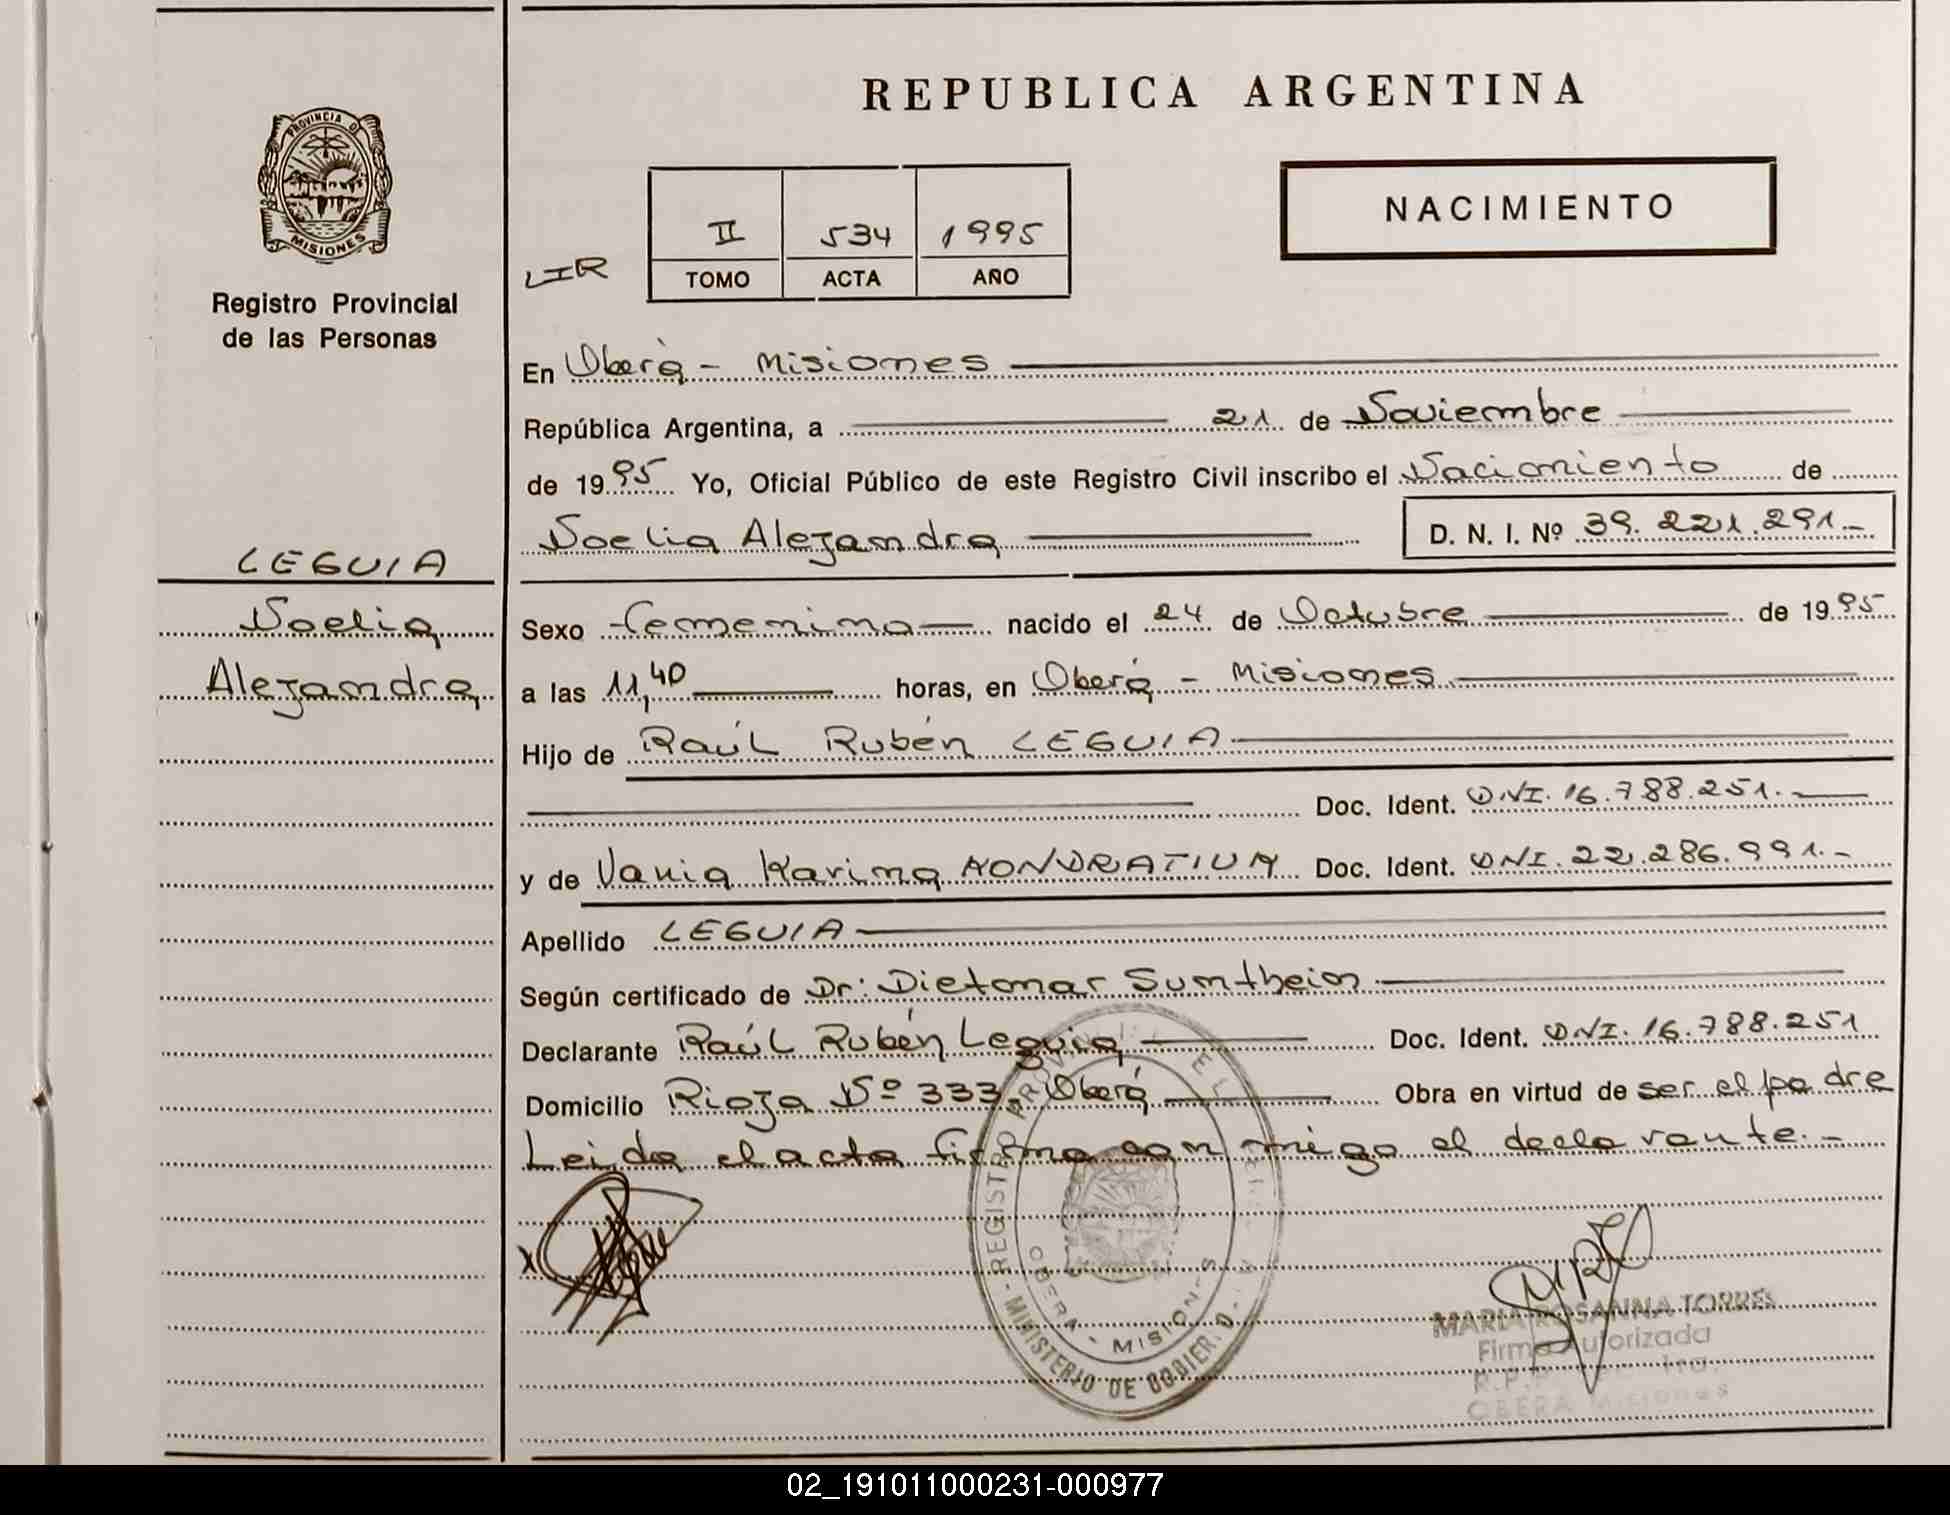 REPUBLICA ARGENTINA
PROVINCIA DE
MISIONES
Registro Provincial
de las Personas
NACIMIENTO
II 534 1995
TOMO ACTA AÑO
LIR
En Oberá - Misiones
República Argentina, a 21 de Noviembre
de 1995 Yo, Oficial Público de este Registro Civil inscribo el Nacimiento de
Noelia Alejandra D. N. I. Nº 39.221.291.-
LEGUIA
Noelia
Alejandra
Sexo femenino nacido el 24 de Octubre de 1995
a las 11,40 horas, en Oberá - Misiones
Hijo de Raúl Rubén LEGUIA
Doc. Ident. DNI. 16.788.251.-
y de Vania Karina KONDRATIUK Doc. Ident. DNI. 22.286.991.-
Apellido LEGUIA
Según certificado de Dr: Dietmar Sumthein
Declarante Raúl Rubén Leguia Doc. Ident. DNI. 16.788.251
Domicilio Rioja Nº 333, Oberá Obra en virtud de ser el padre
Leida el acta firma con migo el declarante.-
REGISTRO PROVINCIAL DE L
OBERA - MISIONES
MINISTERIO DE GOBIERNO
MARIA ROSANNA TORRES
Firma Autorizada
OBERA Misiones
02_191011000231-000977